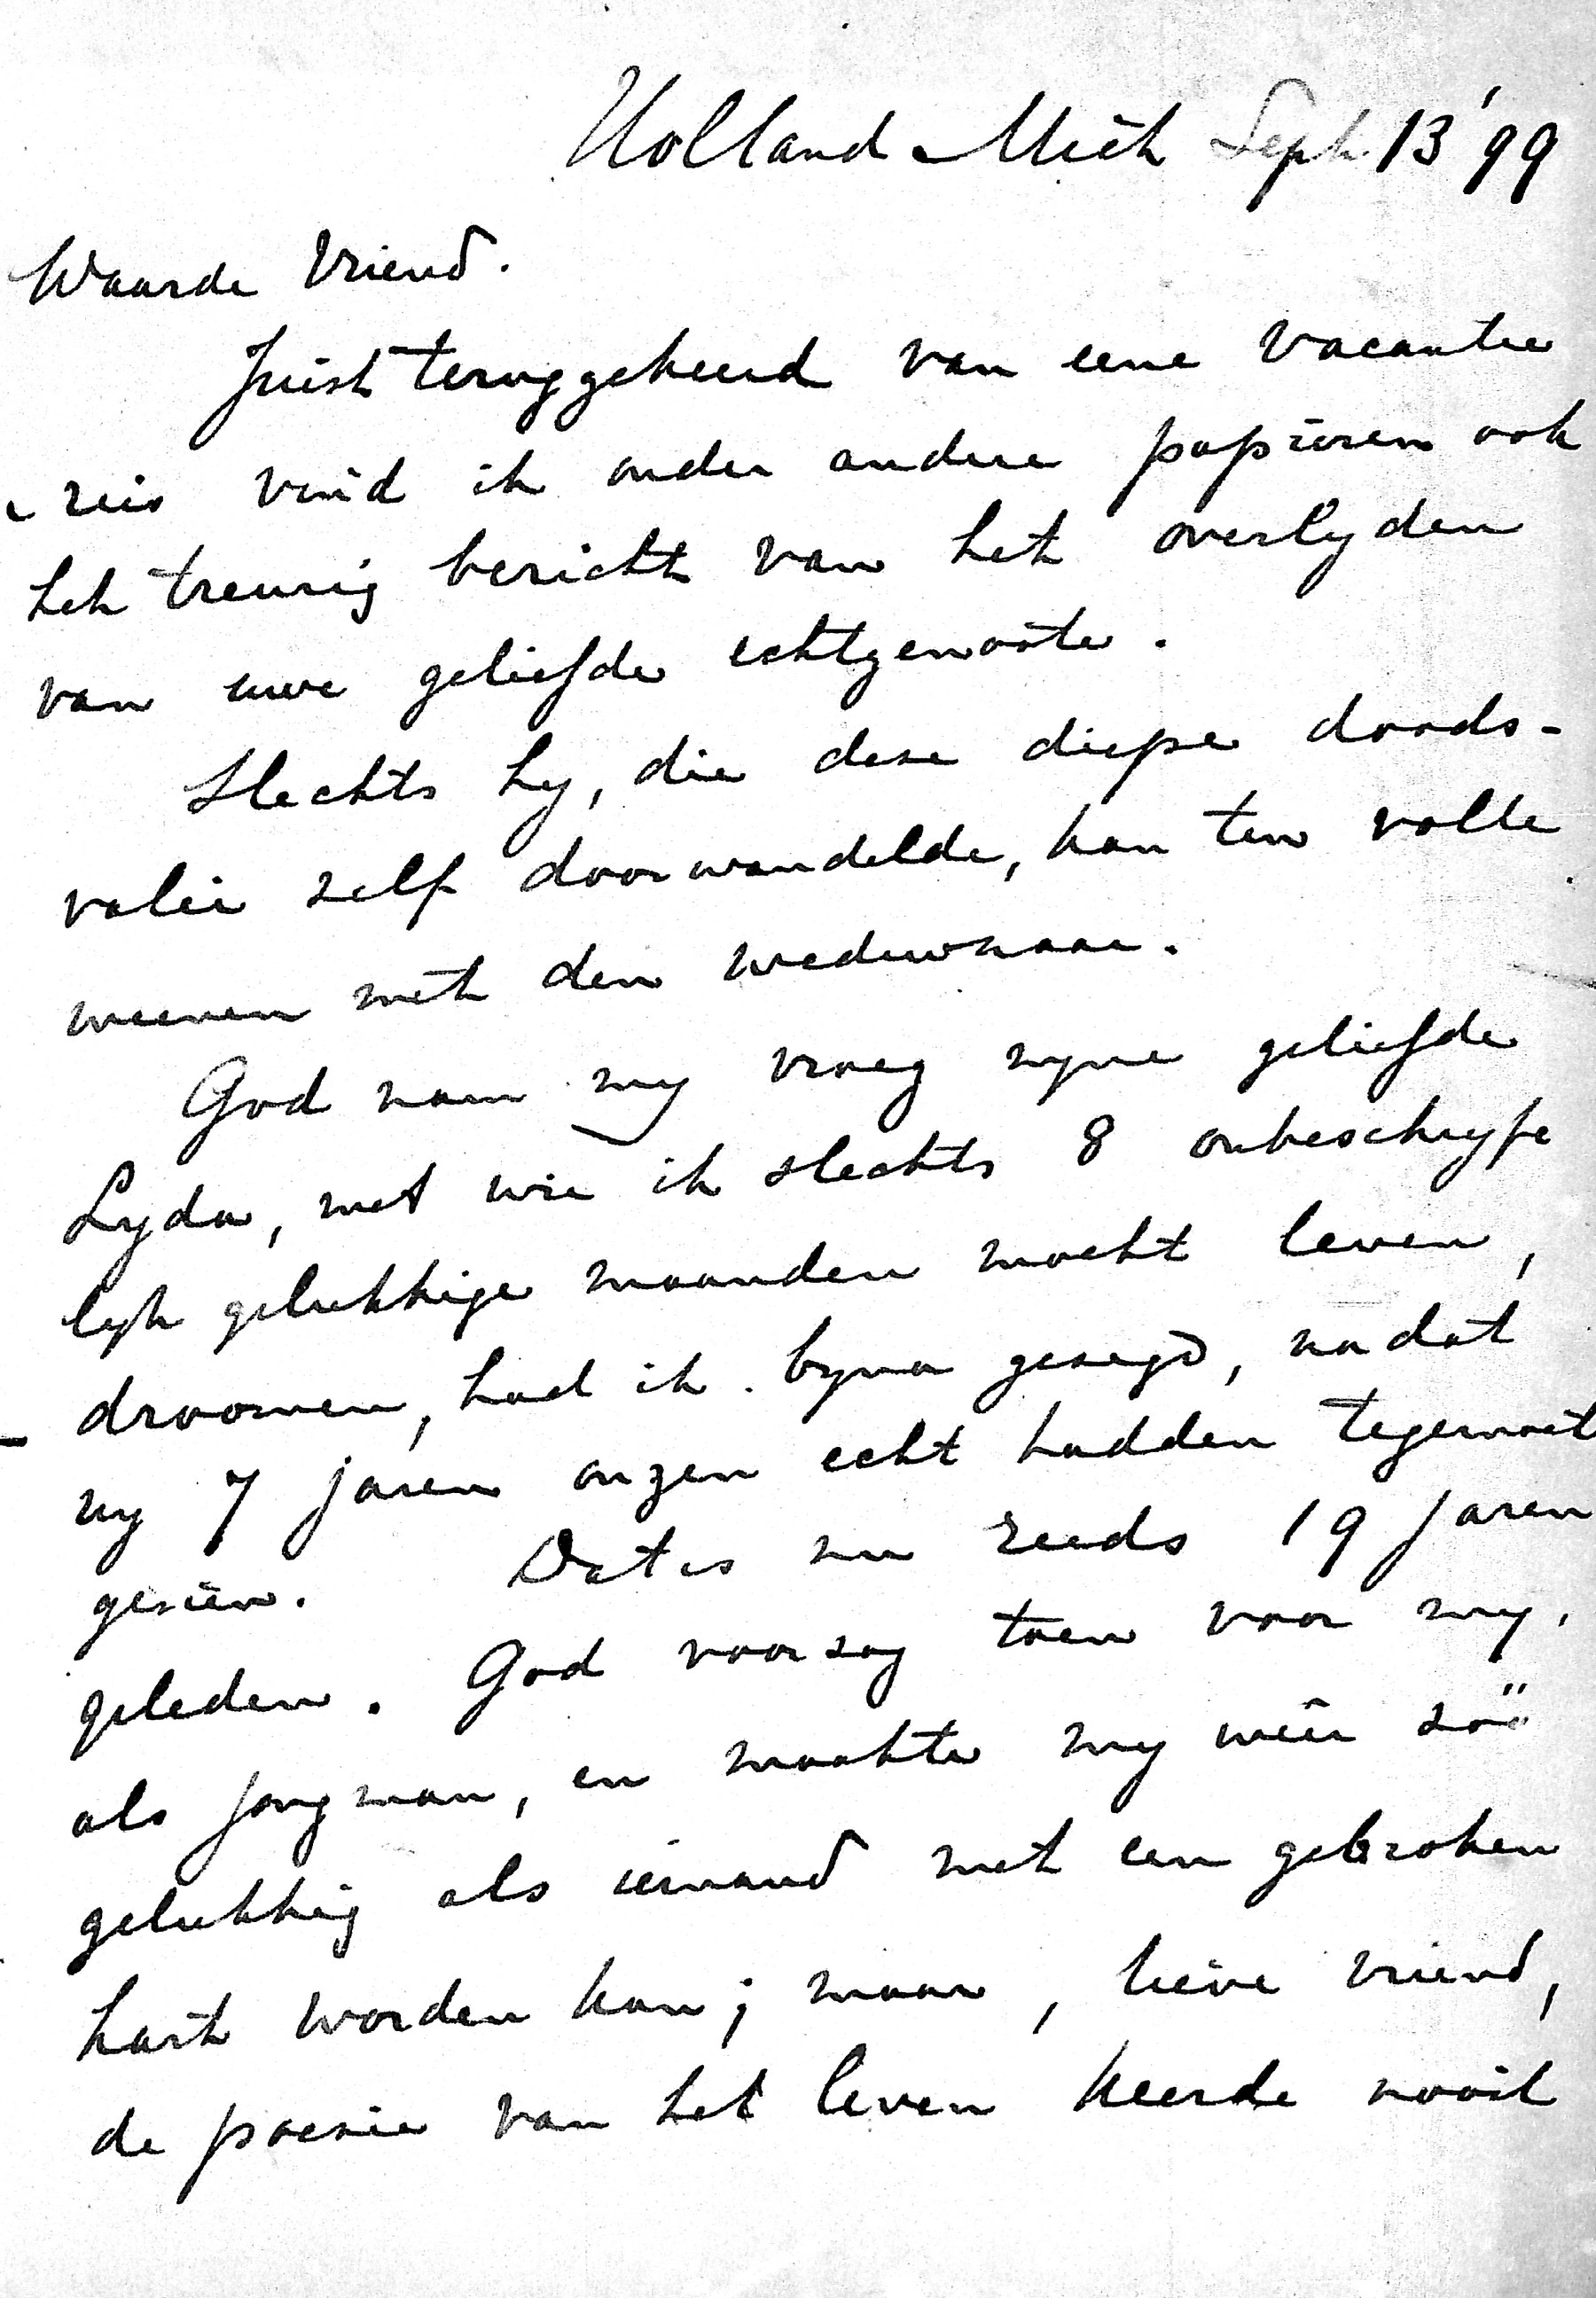 Holland Mich Sept. 13 '99
Waarde Vriend.
Juist teruggekeerd van eene vacantie
reis vind ik onder andere papieren ook
het treurig bericht van het overlyden
van uwe geliefde echtgenoote.
Slechts hy, die deze diepe doods-
valei zelf doorwandelde, kan ten volle
weenen met den weduwnaar.
God nam my vroeg myne geliefde
Lyda, met wie ik slechts 8 onbeschryfe
lyk gelukkige maanden mocht leven,
droomen, had ik byna gezegd, nadat
wy 7 jaren onzen echt hadden tegemoet
gezien. Dat is nu reeds 19 jaren
geleden. God voorzag toen voor my,
als jongman, en maakte my weêr zóó
gelukkig als iemand met een gebroken
hart worden kan; maar, lieve vriend,
de poezie van het leven keerde nooit